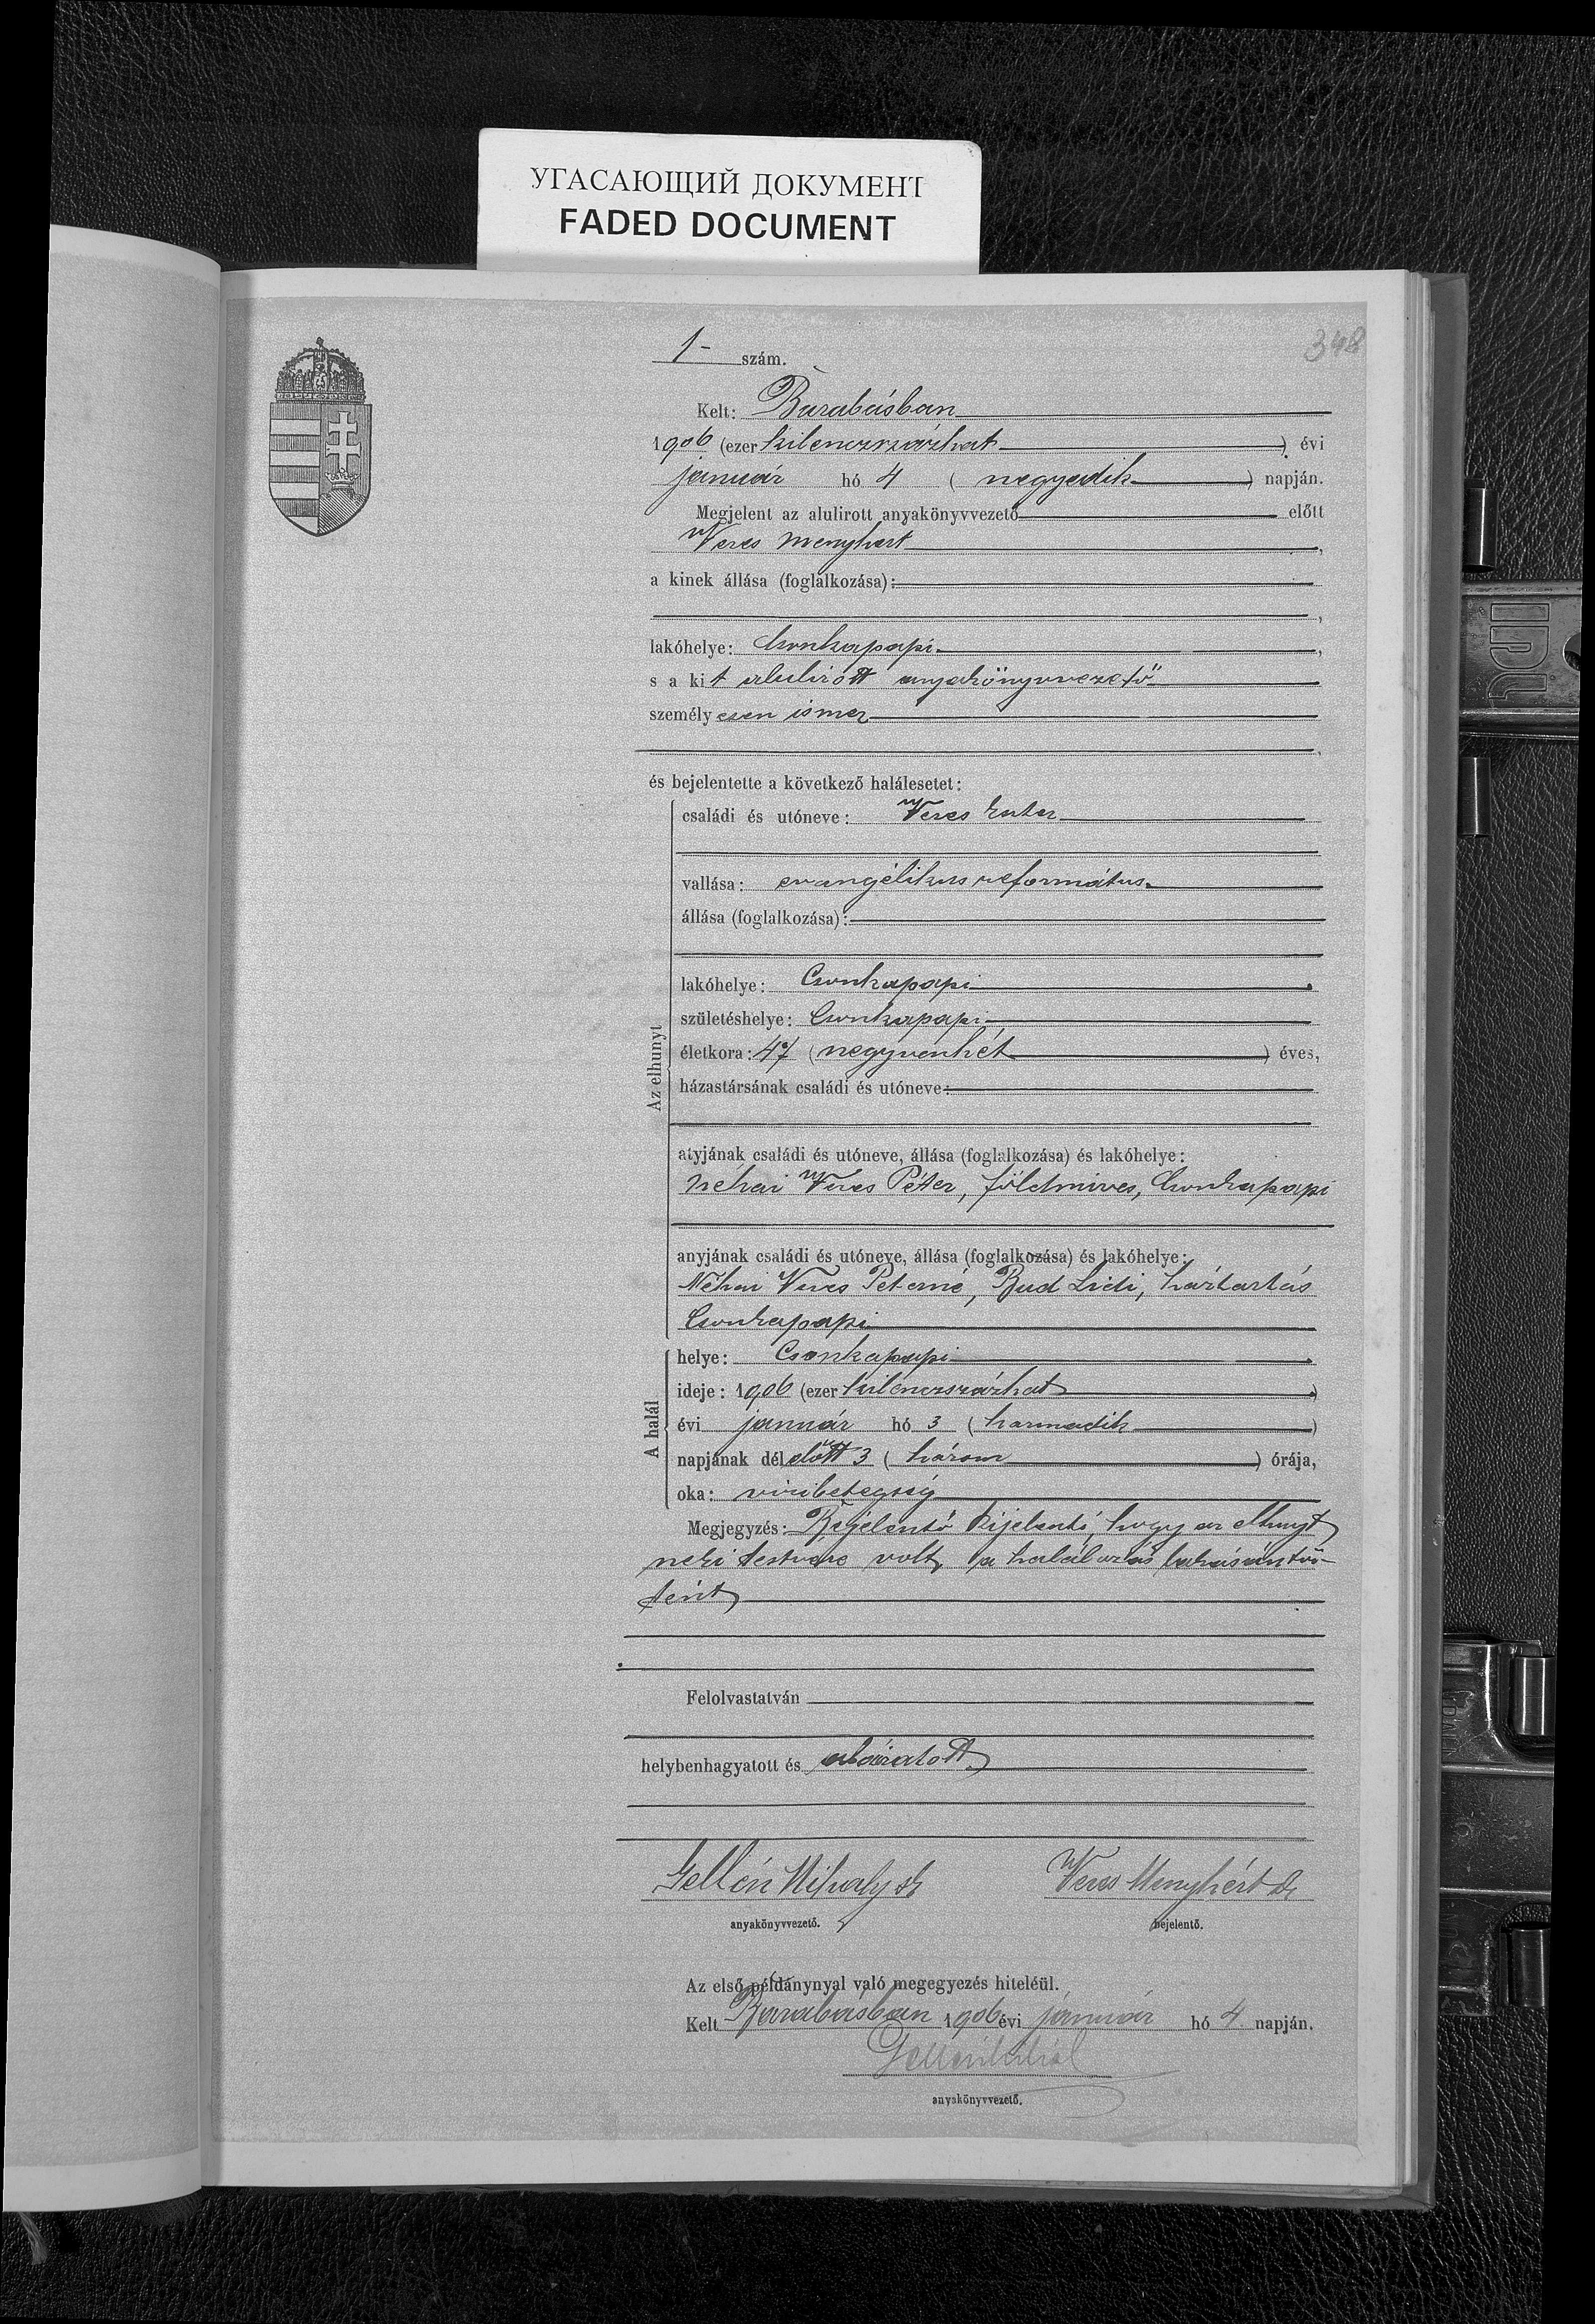 УГАСАЮЩИЙ ДОКУМЕНТ
FADED DOCUMENT
348
1- szám.
Kelt: Barabásban
1906 (ezer kilenczszázhat) évi
január hó 4 (negyedik) napján.
Megjelent az alulirott anyakönyvvezető előtt
Veres Menyhert,
a kinek állása (foglalkozása):
lakóhelye: Csonkapapi,
s a kit alulirott anyakönyvvezető
személyesen ismer,
és bejelentette a következő halálesetet:
Az elhunyt
családi és utóneve: Veres Eszter
vallása: evangélikus református
állása (foglalkozása):
lakóhelye: Csonkapapi
születéshelye: Csonkapapi
életkora: 47 (negyvenhét) éves,
házastársának családi és utóneve:
atyjának családi és utóneve, állása (foglalkozása) és lakóhelye:
néhai Veres Péter, földmives, Csonkapapi
anyjának családi és utóneve, állása (foglalkozása) és lakóhelye:
Néhai Veres Péterné, Bud Lidi, háztartás
Csonkapapi
A halál
helye: Csonkapapi
ideje: 1906 (ezer kilenczszázhat)
évi január hó 3 (harmadik)
napjának délelőtt 3 (három) órája,
oka: vizibetegség
Megjegyzés: Bejelentő kijelenti, hogy az elhunyt
neki testvére volt, a halálozás lakásán tör-
tént
Felolvastatván
helybenhagyatott és aláiratott
Gellén Mihály sk
Veres Menyhért sk
anyakönyvvezető.
bejelentő.
Az első példánynyal való megegyezés hiteléül.
Kelt Barabásban 1906 évi január hó 4 napján.
anyakönyvvezető.